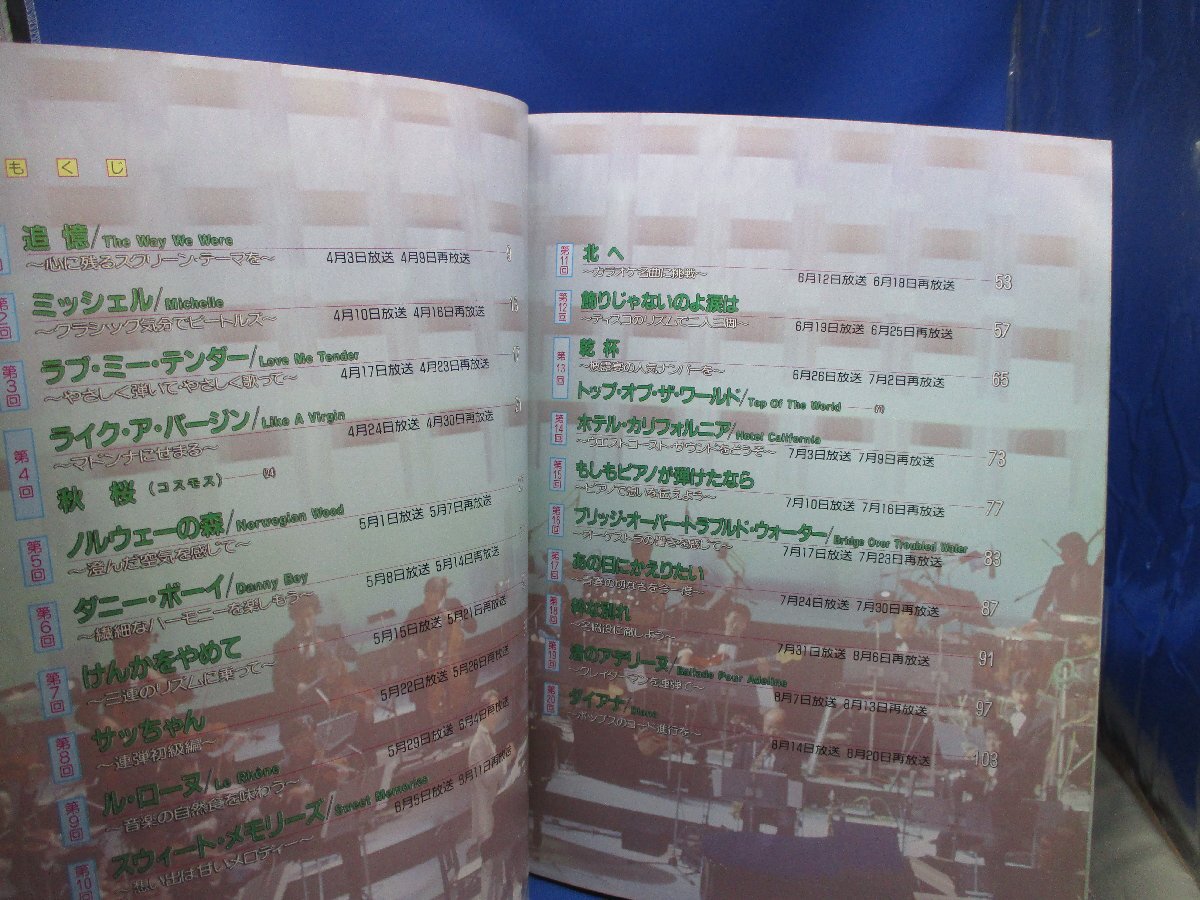 もくじ
追憶/The Way We Were
～心に残るスクリーン・テーマを～ 4月3日放送 4月9日再放送
第2回 ミッシェル/Michelle
～クラシック気分でビートルズ～ 4月10日放送 4月16日再放送
第3回 ラブ・ミー・テンダー/Love Me Tender
～やさしく弾いて・やさしく歌って～ 4月17日放送 4月23日再放送
第4回 ライク・ア・バージン/Like A Virgin
～マドンナにせまる～ 4月24日放送 4月30日再放送
秋桜（コスモス）
第5回 ノルウェーの森/Norwegian Wood
～澄んだ空気を感じて～ 5月1日放送 5月7日再放送
第6回 ダニー・ボーイ/Danny Boy
～繊細なハーモニーを楽しもう～ 5月8日放送 5月14日再放送
第7回 けんかをやめて
～三連のリズムに乗って～ 5月15日放送 5月21日再放送
第8回 サッちゃん
～連弾初級編～ 5月22日放送 5月28日再放送
第9回 ル・ローヌ/Le Rhône
～音楽の自然食を味わう～ 5月29日放送 6月4日再放送
第10回 スウィート・メモリーズ/Sweet Memories
～想い出は甘いメロディー～ 6月5日放送 6月11日再放送
第11回 北へ
～カラオケ名曲に挑戦～ 6月12日放送 6月18日再放送 53
第12回 飾りじゃないのよ涙は
～ディスコのリズムで二人三脚～ 6月19日放送 6月25日再放送 57
第13回 乾杯
～披露宴の人気ナンバーを～ 6月26日放送 7月2日再放送 65
トップ・オブ・ザ・ワールド/Top Of The World
第14回 ホテル・カリフォルニア/Hotel California
～ウエストコースト・サウンドをどうぞ～ 7月3日放送 7月9日再放送 73
第15回 もしもピアノが弾けたなら
～ピアノで思いを伝えよう～ 7月10日放送 7月16日再放送 77
第16回 ブリッジ・オーバー・トラブルド・ウォーター/Bridge Over Troubled Water
～オーケストラの響きを感じて～ 7月17日放送 7月23日再放送 83
第17回 あの日にかえりたい
～青春の切なさを今一度～ 7月24日放送 7月30日再放送 87
第18回 粋な別れ
7月31日放送 8月6日再放送 91
第19回 渚のアデリーヌ/Ballade Pour Adeline
～クレイダーマンを連弾で～ 8月7日放送 8月13日再放送 97
第20回 ダイアナ/Diana
～ポップスのコード進行を～ 8月14日放送 8月20日再放送 103